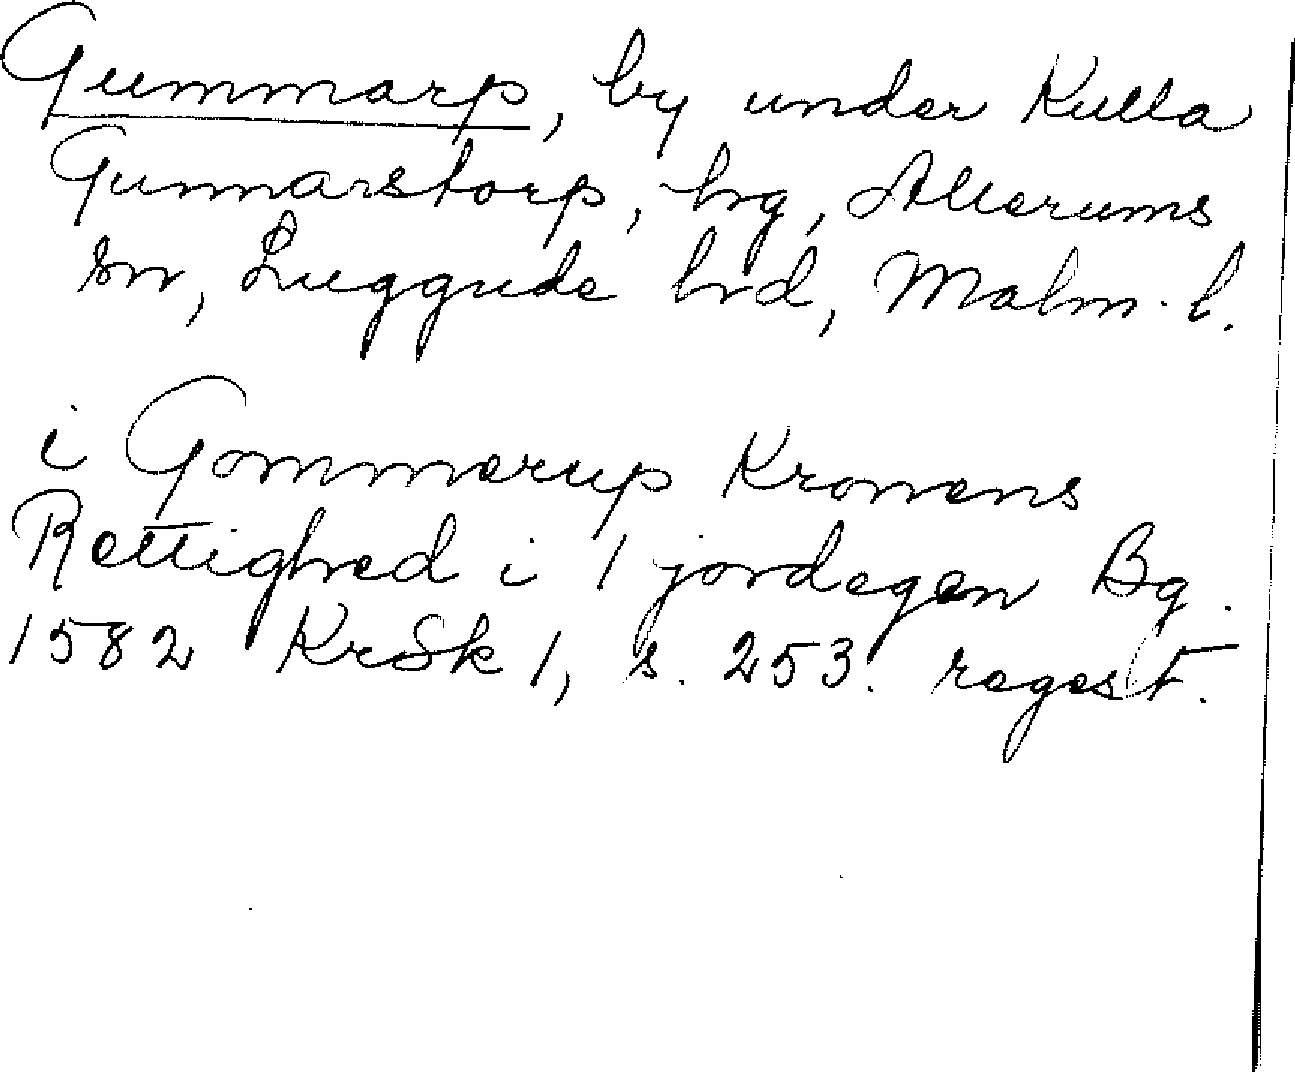 Gummarp, by under Kulla
Gunnarstorp, hrg, Allerums
sn, Luggude hrd, Malm. l.
i Gommerup Kronens
Rettighed i 1 jordegen Bg.
1582 KrSk 1, s. 253. regest.